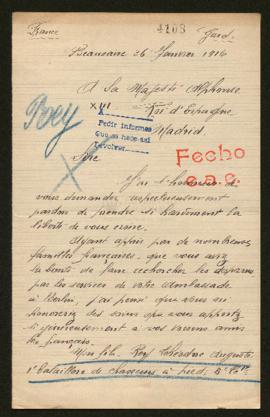 France
4108
Gard
Beaucaire 26 Janvier 1916
A Sa Majesté Alphonse
XIII
Roi d'Espagne
Madrid.
Boey
Pedir informes
que se hace así
Sire
Fecho
J'ai l'honneur de
vous demander respectueusement
pardon de prendre si hardiment la
liberté de vous écrire.
Ayant appris par de nombreuses
familles françaises, que vous avez
la bonté de faire rechercher les disparus
par les services de votre Ambassade
à Berlin, j'ai pensé que vous
honorerez des soins que vous apportez
si généreusement à vos vaillants amis
les français.
Mon fils, Boey Théodore Auguste
Bataillon de chasseurs à pied, 5e Cie